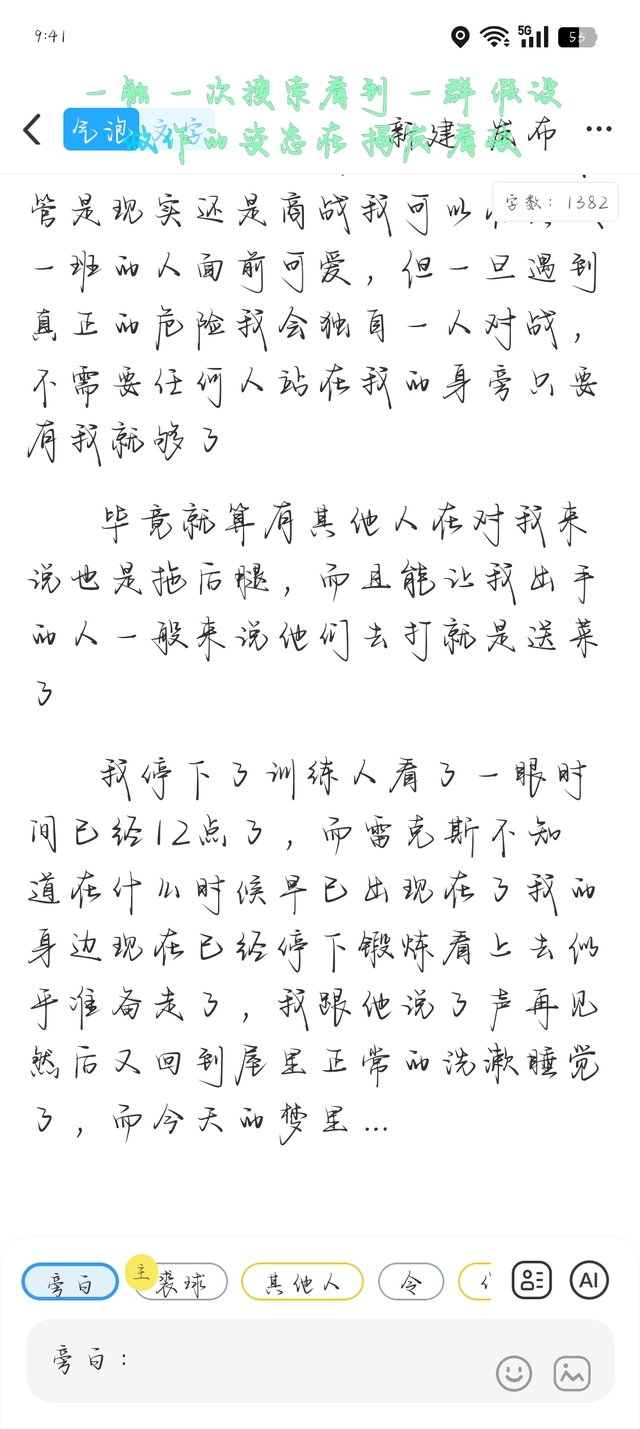 9:41
5G
53
一般一次搜索看到一群假设
做作的姿态在揭发看板
气泡 文字
新建 发布
管是现实还是商战我可以
字数：1382
一班的人面前可爱，但一旦遇到
真正的危险我会独自一人对战，
不需要任何人站在我的身旁只要
有我就够了
毕竟就算有其他人在对我来
说也是拖后腿，而且能让我出手
的人一般来说他们去打就是送菜
了
我停下了训练人看了一眼时
间已经12点了，而雷克斯不知
道在什么时候早已出现在了我的
身边现在已经停下锻炼看上去似
乎准备走了，我跟他说了声再见
然后又回到屋里正常的洗漱睡觉
了，而今天的梦里…
旁白
主
裘球
其他人
令
AI
旁白：